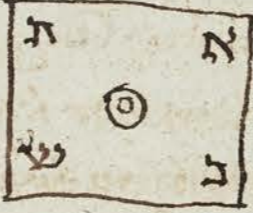 א ת
ב ש